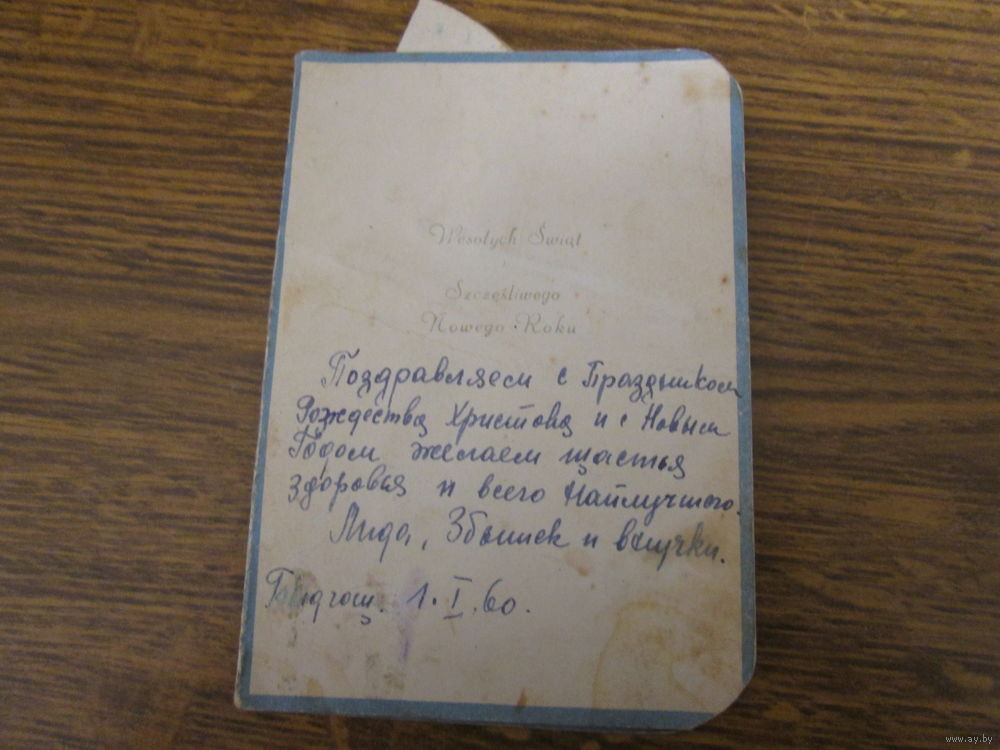 Wesołych Świąt
Szczęśliwego
Nowego Roku
Поздравляем с Праздником
Рождества Христова и с Новым
Годом желаем щастья
здоровья и всего Наилучшего.
Лида, Збышек и внучки.
1.I.60.
www.ay.by